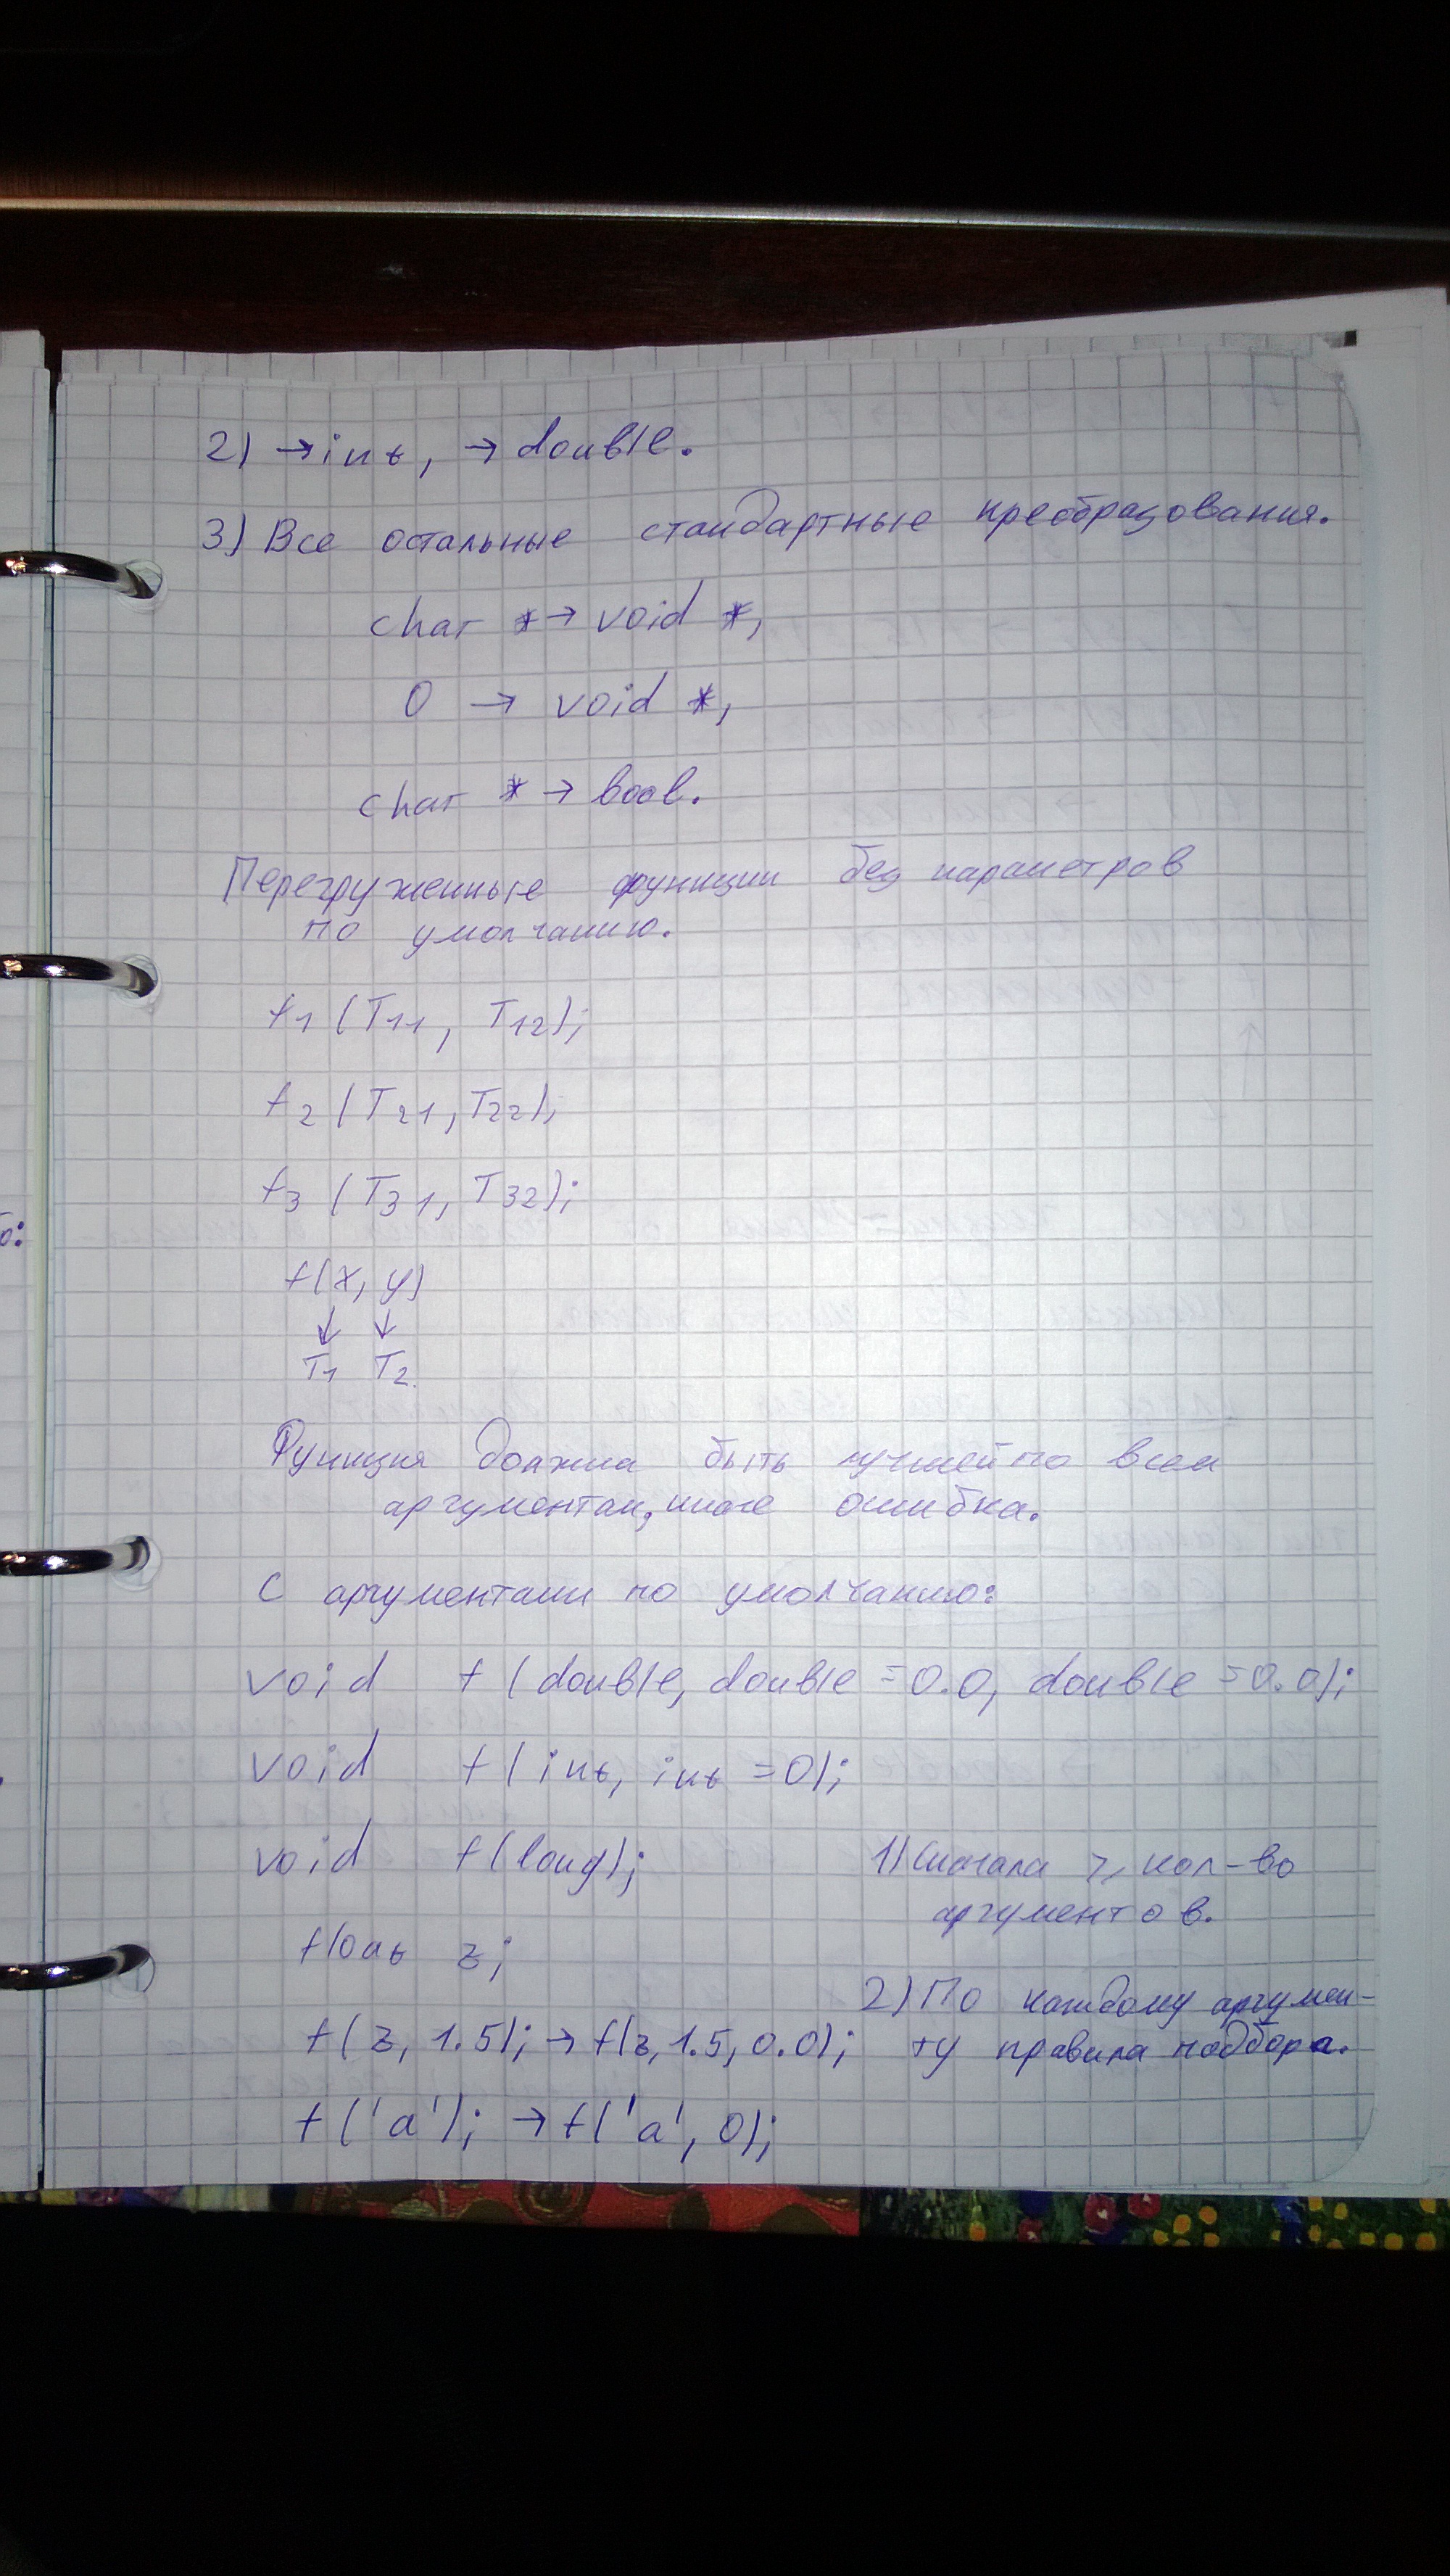 2) → int, → double.
3) Все остальные стандартные преобразования.
char * → void *,
0 → void *,
char * → bool.
Перегруженные функции без параметров
по умолчанию.
f1 (T11, T12);
f2 (T21, T22);
f3 (T31, T32);
f(x, y)
↓ ↓
T1 T2
Функция должна быть лучшей по всем
аргументам, иначе ошибка.
С аргументами по умолчанию:
void f (double, double = 0.0, double = 0.0);
void f (int, int = 0);
void f (long);
float z;
f(z, 1.5); → f(z, 1.5, 0.0);
f('a'); → f('a', 0);
1) Сначала ≥ кол-во
аргументов.
2) По каждому аргумен-
ту правила подбора.
о: